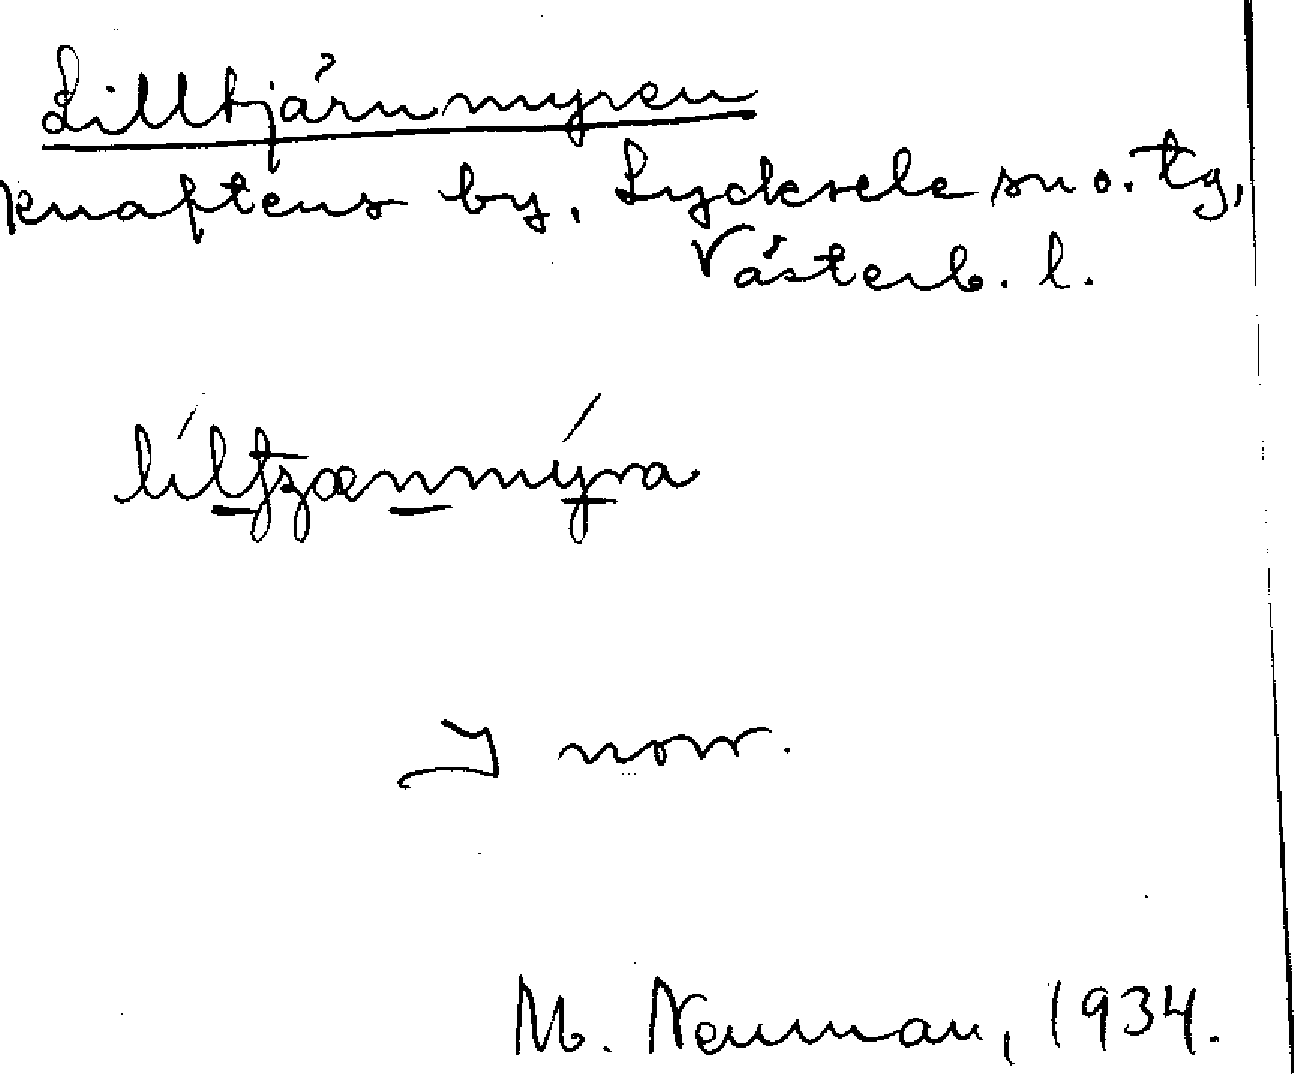 Lilltjärnmyren
Knaftens by, Lycksele sn o. tg,
Västerb. l.
líltjænmýra
I norr.
M. Neuman, 1934.